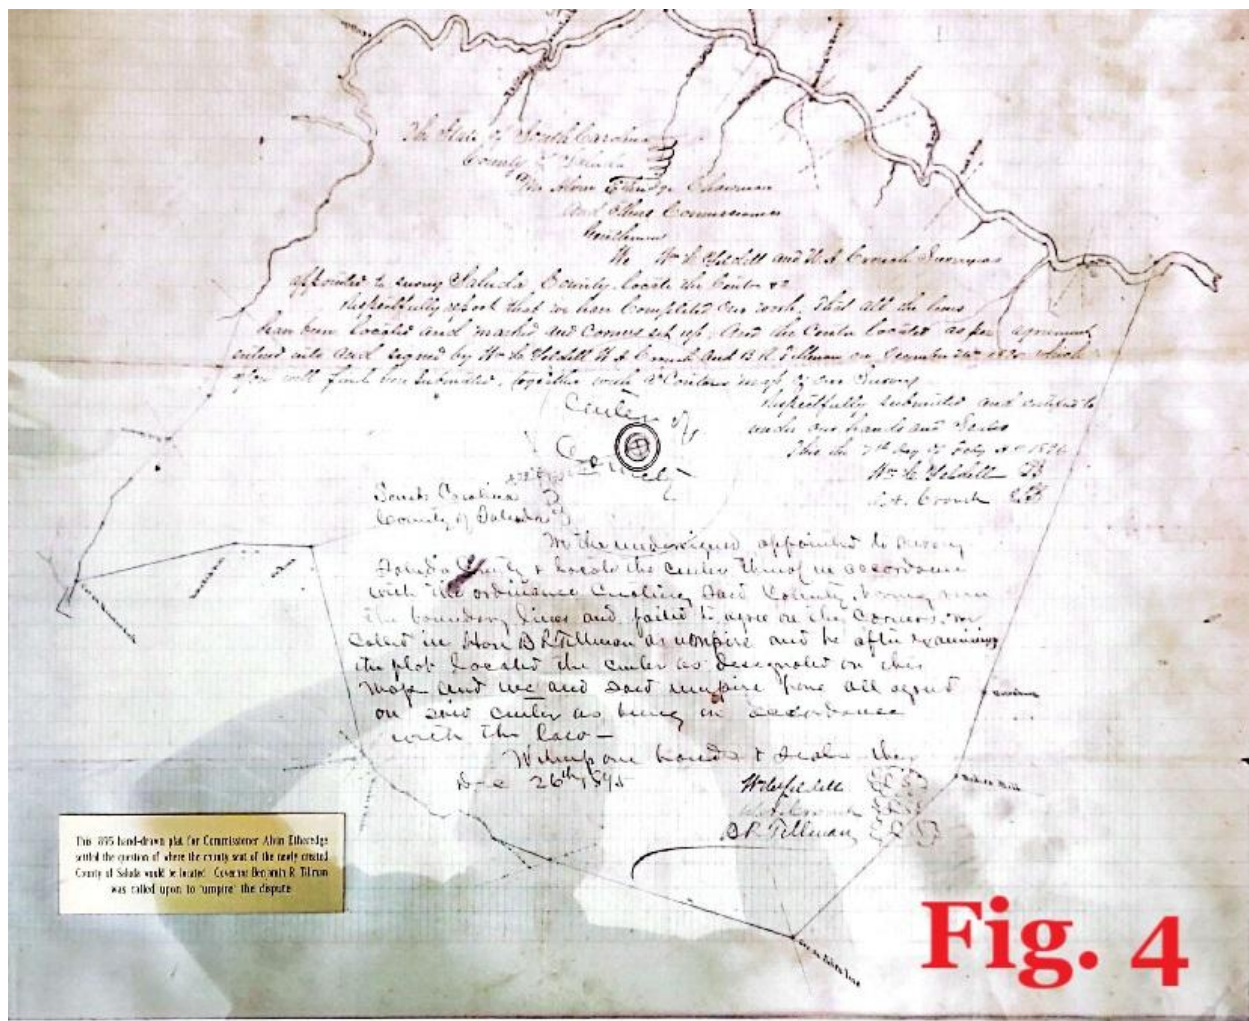 The State of South Carolina
County of Saluda
Mr Alvin Etheredge Chairman
and Other Commissioners
Gentlemen
We Wm L Yeldell and H A Crouch Surveyors
appointed to survey Saluda County. locate the Center &c
Respectfully report that we have Completed our work, That all the lines
have been located and marked and Corners set up, And the Center located as per agreement
entered into and signed by Wm L Yeldell H A Crouch and B R Tillman on December 26th 1895 which
you will find here submitted, together with a Contour map of our Survey
Respectfully submitted and certified to
under our hands and Seals
This the 7th day of Feby AD 1896
Wm L Yeldell
H. A. Crouch
Center of
County
South Carolina
County of Saluda
We the undersigned appointed to survey
Saluda County & locate the center thereof in accordance
with the ordinance creating said County, having run
the boundary lines and failed to agree on the corners
called in Hon B R Tillman as umpire and he after examining
the plot located the center as designated on this
map and we and said umpire have all agreed
on said center as being in accordance
with the law—
Witness our hands & seals this
Dec 26th 1895
Wm L Yeldell
H A Crouch
B R Tillman
This 1895 hand-drawn plat for Commissioner Alvin Etheredge
settled the question of where the county seat of the newly created
County of Saluda would be located. Governor Benjamin R. Tillman
was called upon to "umpire" the dispute.
Fig. 4